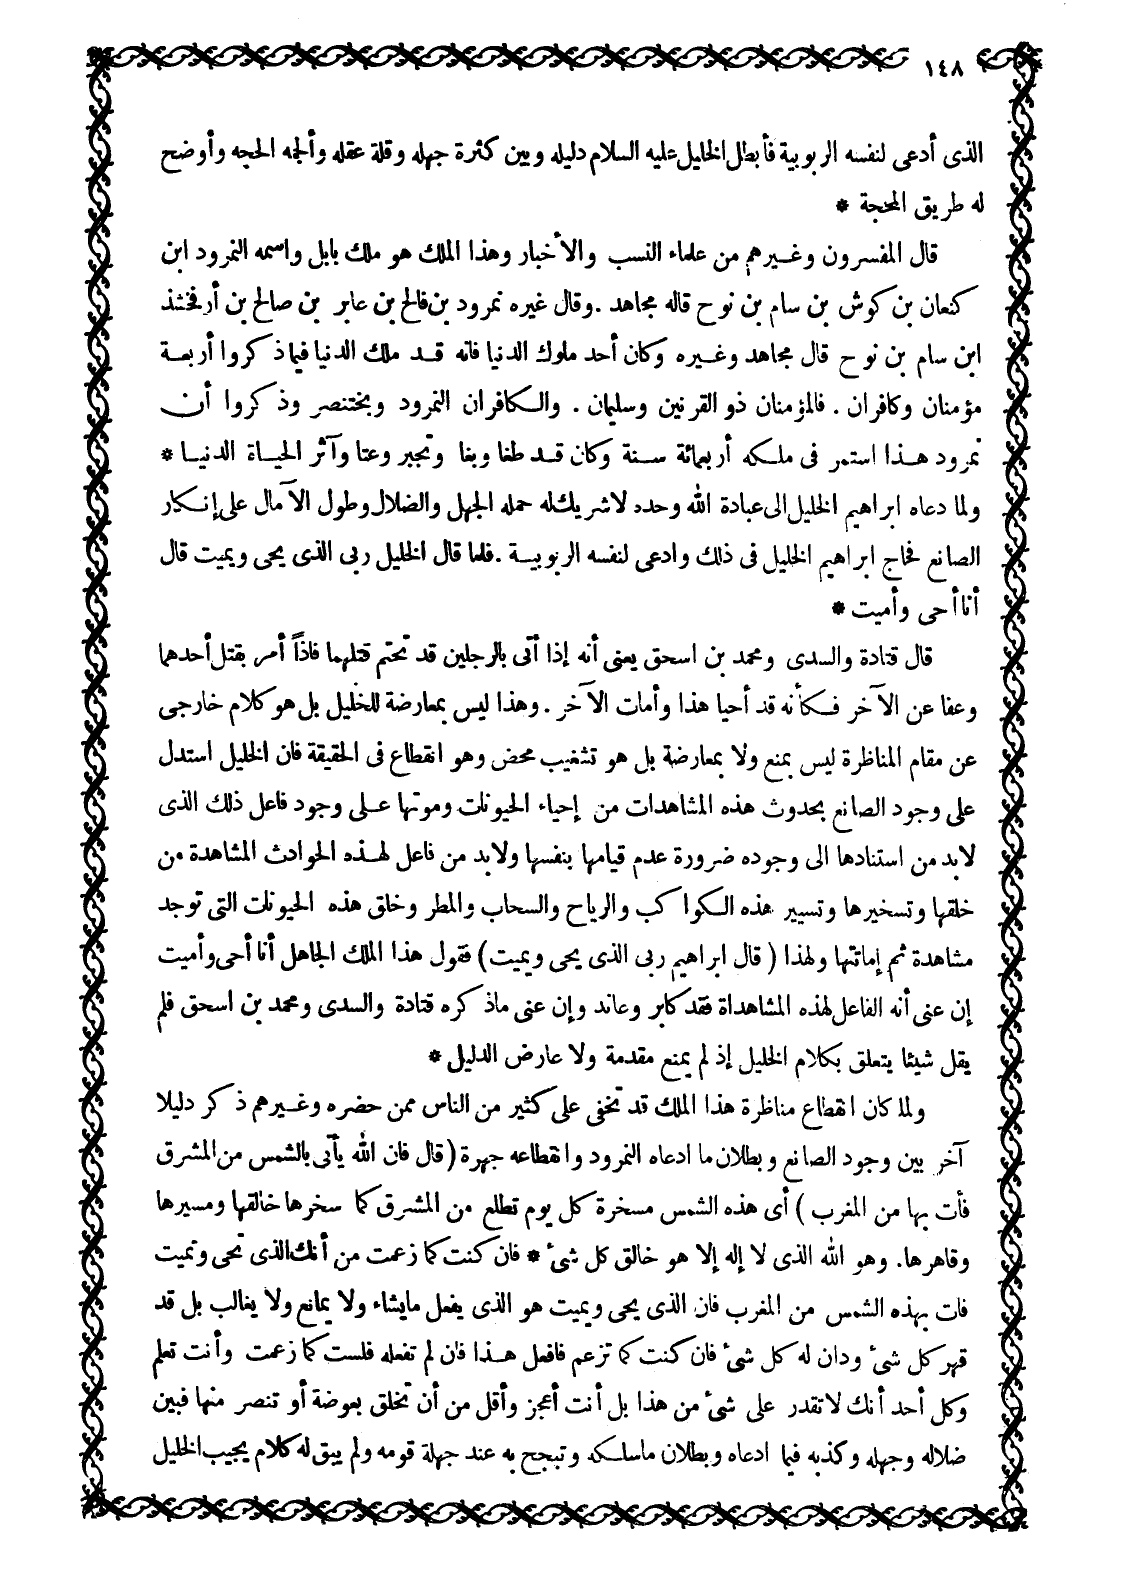 ١٤٨
الذى أدعى لنفسه الربوبية فأبطل الخليل عليه السلام دليله وبين كثرة جهله وقلة عقله وألجمه الحجه وأوضح
له طريق المحجة *
قال المفسرون وغيرهم من علماء النسب والأخبار وهذا الملك هو ملك بابل واسمه النمرود ابن
كنعان بن كوش بن سام بن نوح قاله مجاهد . وقال غيره نمرود بن فالح بن عابر بن صالح بن أرفخشذ
ابن سام بن نوح قال مجاهد وغيره وكان أحد ملوك الدنيا فانه قد ملك الدنيا فيما ذكروا أربعة
مؤمنان وكافران . فالمؤمنان ذو القرنين وسليمان . والكافران النمرود وبختنصر وذكروا أن
نمرود هذا استمر فى ملكه أربعمائة سنة وكان قد طغا وبغا وتجبر وعتا وآثر الحياة الدنيا *
ولما دعاه ابراهيم الخليل الى عبادة الله وحده لا شريك له حمله الجهل والضلال وطول الآمال على إنكار
الصانع فحاج ابراهيم الخليل فى ذلك وادعى لنفسه الربوبية . فلما قال الخليل ربى الذى يحى ويميت قال
أنا أحى وأميت *
قال قتادة والسدى ومحمد بن اسحق يعنى أنه إذا أتى بالرجلين قد تحتم قتلهما فاذاً أمر بقتل أحدهما
وعفا عن الآخر فكأنه قد أحيا هذا وأمات الآخر . وهذا ليس بمعارضة للخليل بل هو كلام خارجى
عن مقام المناظرة ليس بمنع ولا بمعارضة بل هو تشغيب محض وهو انقطاع فى الحقيقة فان الخليل استدل
على وجود الصانع بحدوث هذه المشاهدات من إحياء الحيونات وموتها على وجود فاعل ذلك الذى
لابد من استنادها الى وجوده ضرورة عدم قيامها بنفسها ولابد من فاعل لهذه الحوادث المشاهدة من
خلقها وتسخيرها وتسيير هذه الكواكب والرياح والسحاب والمطر وخلق هذه الحيونات التى توجد
مشاهدة ثم إماتتها ولهذا ( قال ابراهيم ربى الذى يحى ويميت ) فقول هذا الملك الجاهل أنا أحى وأميت
إن عنى أنه الفاعل لهذه المشاهداة فقد كابر وعاند وإن عنى ماذكره قتادة والسدى ومحمد بن اسحق فلم
يقل شيئا يتعلق بكلام الخليل إذ لم يمنع مقدمة ولا عارض الدليل *
ولما كان انقطاع مناظرة هذا الملك قد تخفى على كثير من الناس ممن حضره وغيرهم ذكر دليلا
آخر بين وجود الصانع وبطلان ما ادعاه النمرود وانقطاعه جهرة ( قال فان الله يأتى بالشمس من المشرق
فأت بها من المغرب ) أى هذه الشمس مسخرة كل يوم تطلع من المشرق كما سخرها خالقها ومسيرها
وقاهرها . وهو الله الذى لا إله إلا هو خالق كل شئ * فان كنت كما زعمت من أنك الذى تحى وتميت
فات بهذه الشمس من المغرب فان الذى يحى ويميت هو الذى يفعل مايشاء ولا يمانع ولا يغالب بل قد
قهر كل شئ ودان له كل شئ فان كنت كما تزعم فافعل هذا فان لم تفعله فلست كما زعمت وأنت تعلم
وكل أحد أنك لاتقدر على شئ من هذا بل أنت أعجز وأقل من أن تخلق بعوضة أو تنصر منها فبين
ضلاله وجهله وكذبه فيما ادعاه وبطلان ماسلكه وتبجح به عند جهلة قومه ولم يبق له كلام يجيب الخليل